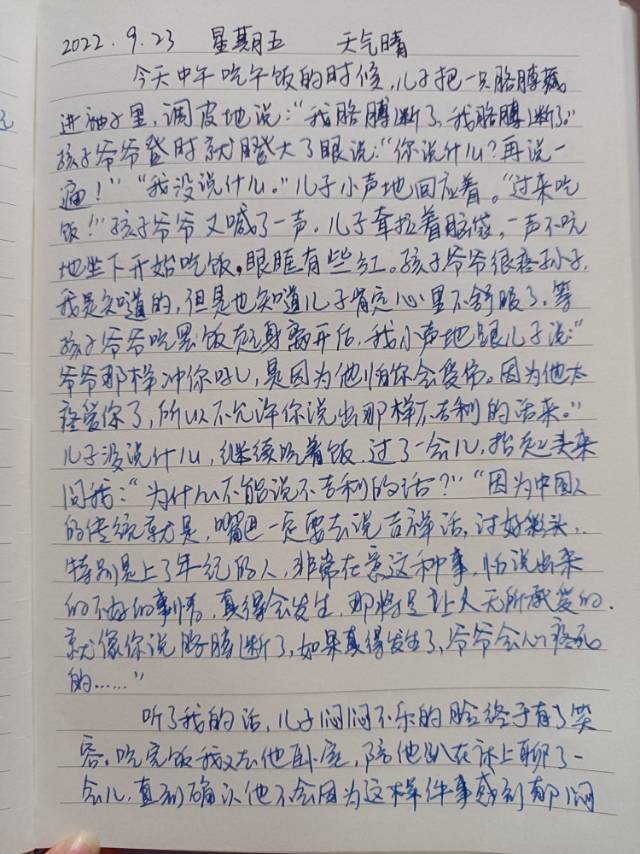 2022.9.23 星期五 天气晴
今天中午吃午饭的时候,儿子把一只胳膊藏
进袖子里,调皮地说:“我胳膊断了,我胳膊断了。”
孩子爷爷登时就瞪大了眼说:“你说什么?再说一
遍!”“我没说什么。”儿子小声地回应着。“过来吃
饭!”孩子爷爷又喊了一声。儿子耷拉着脑袋,一声不吭
地坐下开始吃饭。眼眶有些红。孩子爷爷很疼孙子,
我是知道的,但是也知道儿子肯定心里不舒服了。等
孩子爷爷吃罢饭起身离开后,我小声地跟儿子说:“
爷爷那样冲你吼,是因为他怕你会受伤。因为他太
疼爱你了,所以不允许你说出那样不吉利的话来。”
儿子没说什么,继续吃着饭,过了一会儿,抬起头来
问我:“为什么不能说不吉利的话?”“因为中国人
的传统就是,嘴巴一定要去说吉祥话,讨好彩头,
特别是上了年纪的人,非常在意这种事,怕说出来
的不好的事情,真得会发生,那将是让人无所承受的。
就像你说胳膊断了,如果真得发生了,爷爷会心疼死
的……”
听了我的话,儿子闷闷不乐的脸终于有了笑
容。吃完饭我又去他卧室,陪他趴在床上聊了一
会儿,直到确认他不会因为这样件事感到郁闷